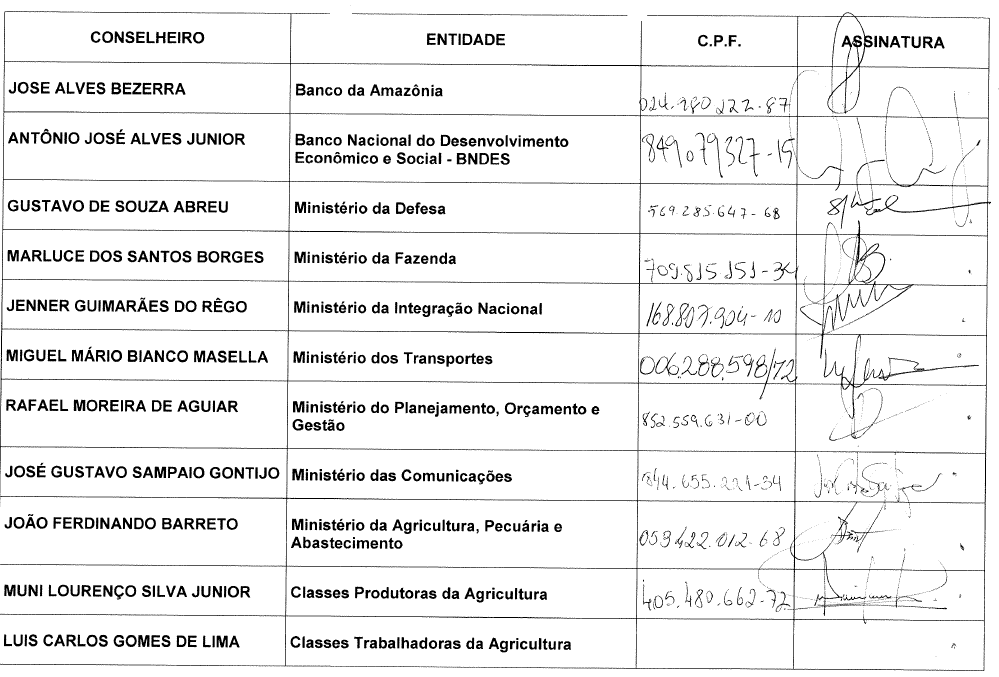 CONSELHEIRO ENTIDADE C.P.F. ASSINATURA
JOSE ALVES BEZERRA Banco da Amazônia 024.280.122-87
ANTÔNIO JOSÉ ALVES JUNIOR Banco Nacional do Desenvolvimento
Econômico e Social - BNDES 849.079.327-15
GUSTAVO DE SOUZA ABREU Ministério da Defesa 569.285.647-68
MARLUCE DOS SANTOS BORGES Ministério da Fazenda 709.815.151-34
JENNER GUIMARÃES DO RÊGO Ministério da Integração Nacional 168.807.904-10
MIGUEL MÁRIO BIANCO MASELLA Ministério dos Transportes 006.288.598/72
RAFAEL MOREIRA DE AGUIAR Ministério do Planejamento, Orçamento e
Gestão 852.559.631-00
JOSÉ GUSTAVO SAMPAIO GONTIJO Ministério das Comunicações 844.655.221-34
JOÃO FERDINANDO BARRETO Ministério da Agricultura, Pecuária e
Abastecimento 053422.012.68
MUNI LOURENÇO SILVA JUNIOR Classes Produtoras da Agricultura 405.480.662-72
LUIS CARLOS GOMES DE LIMA Classes Trabalhadoras da Agricultura